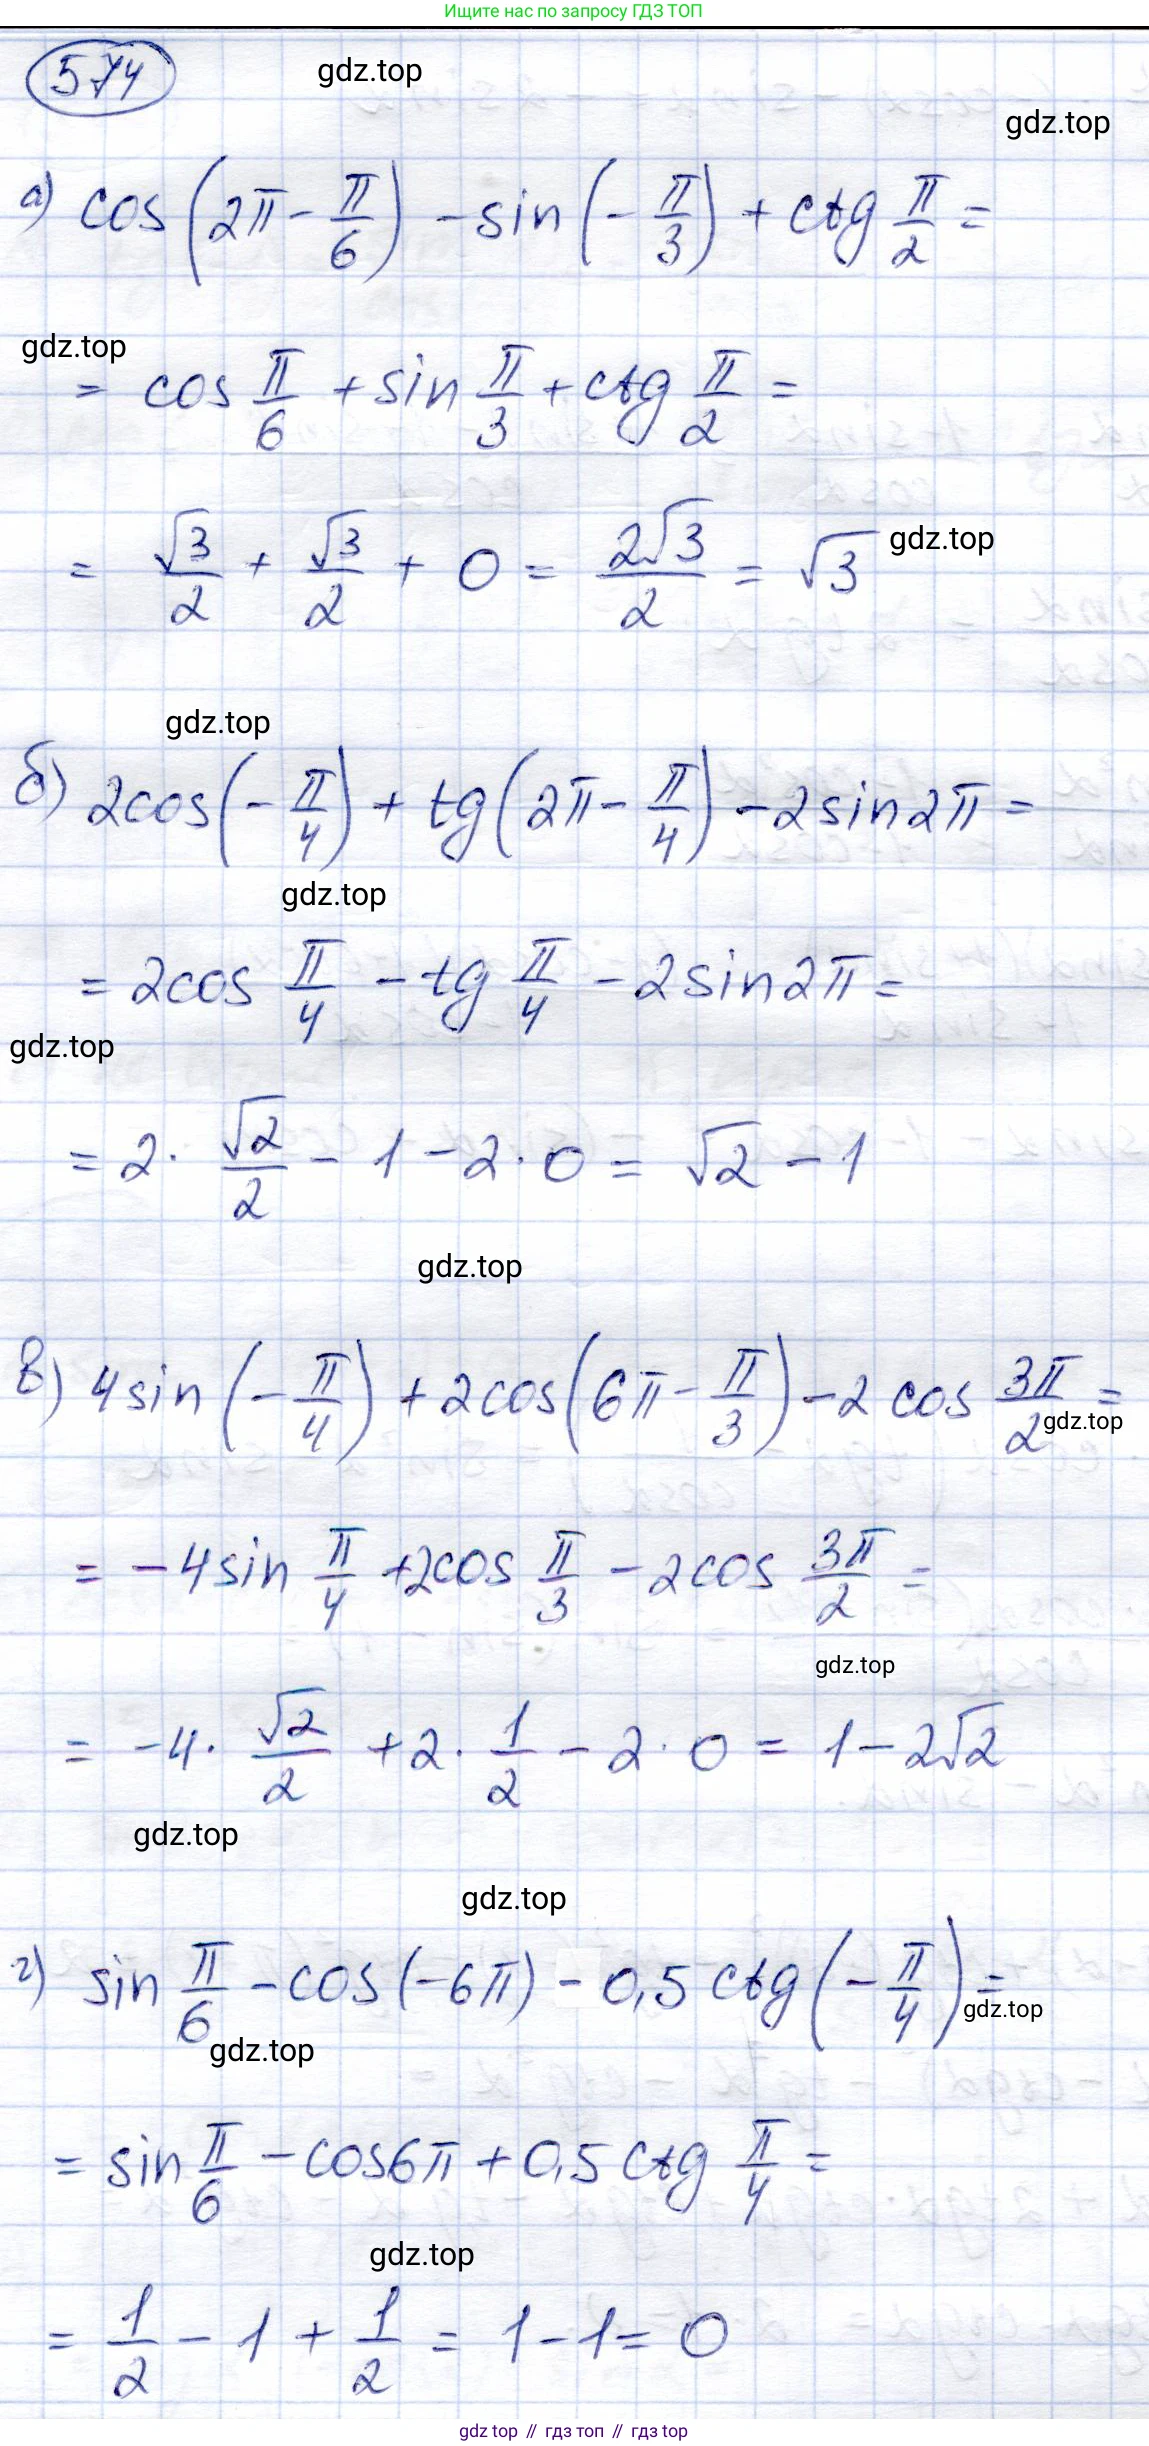 Ищите нас по запросу ГДЗ ТОП
574
gdz.top
gdz.top
а) cos(2π - π/6) - sin(-π/3) + ctg π/2 =
gdz.top
= cos π/6 + sin π/3 + ctg π/2 =
= √3/2 + √3/2 + 0 = 2√3/2 = √3
gdz.top
gdz.top
б) 2cos(-π/4) + tg(2π - π/4) - 2sin2π =
gdz.top
= 2cos π/4 - tg π/4 - 2sin2π =
gdz.top
= 2 · √2/2 - 1 - 2 · 0 = √2 - 1
gdz.top
в) 4sin(-π/4) + 2cos(6π - π/3) - 2cos 3π/2 =
gdz.top
= -4sin π/4 + 2cos π/3 - 2cos 3π/2 =
gdz.top
= -4 · √2/2 + 2 · 1/2 - 2 · 0 = 1 - 2√2
gdz.top
gdz.top
г) sin π/6 - cos(-6π) - 0,5ctg(-π/4) =
gdz.top
gdz.top
= sin π/6 - cos6π + 0,5ctg π/4 =
gdz.top
= 1/2 - 1 + 1/2 = 1 - 1 = 0
gdz top // гдз топ // гдз top